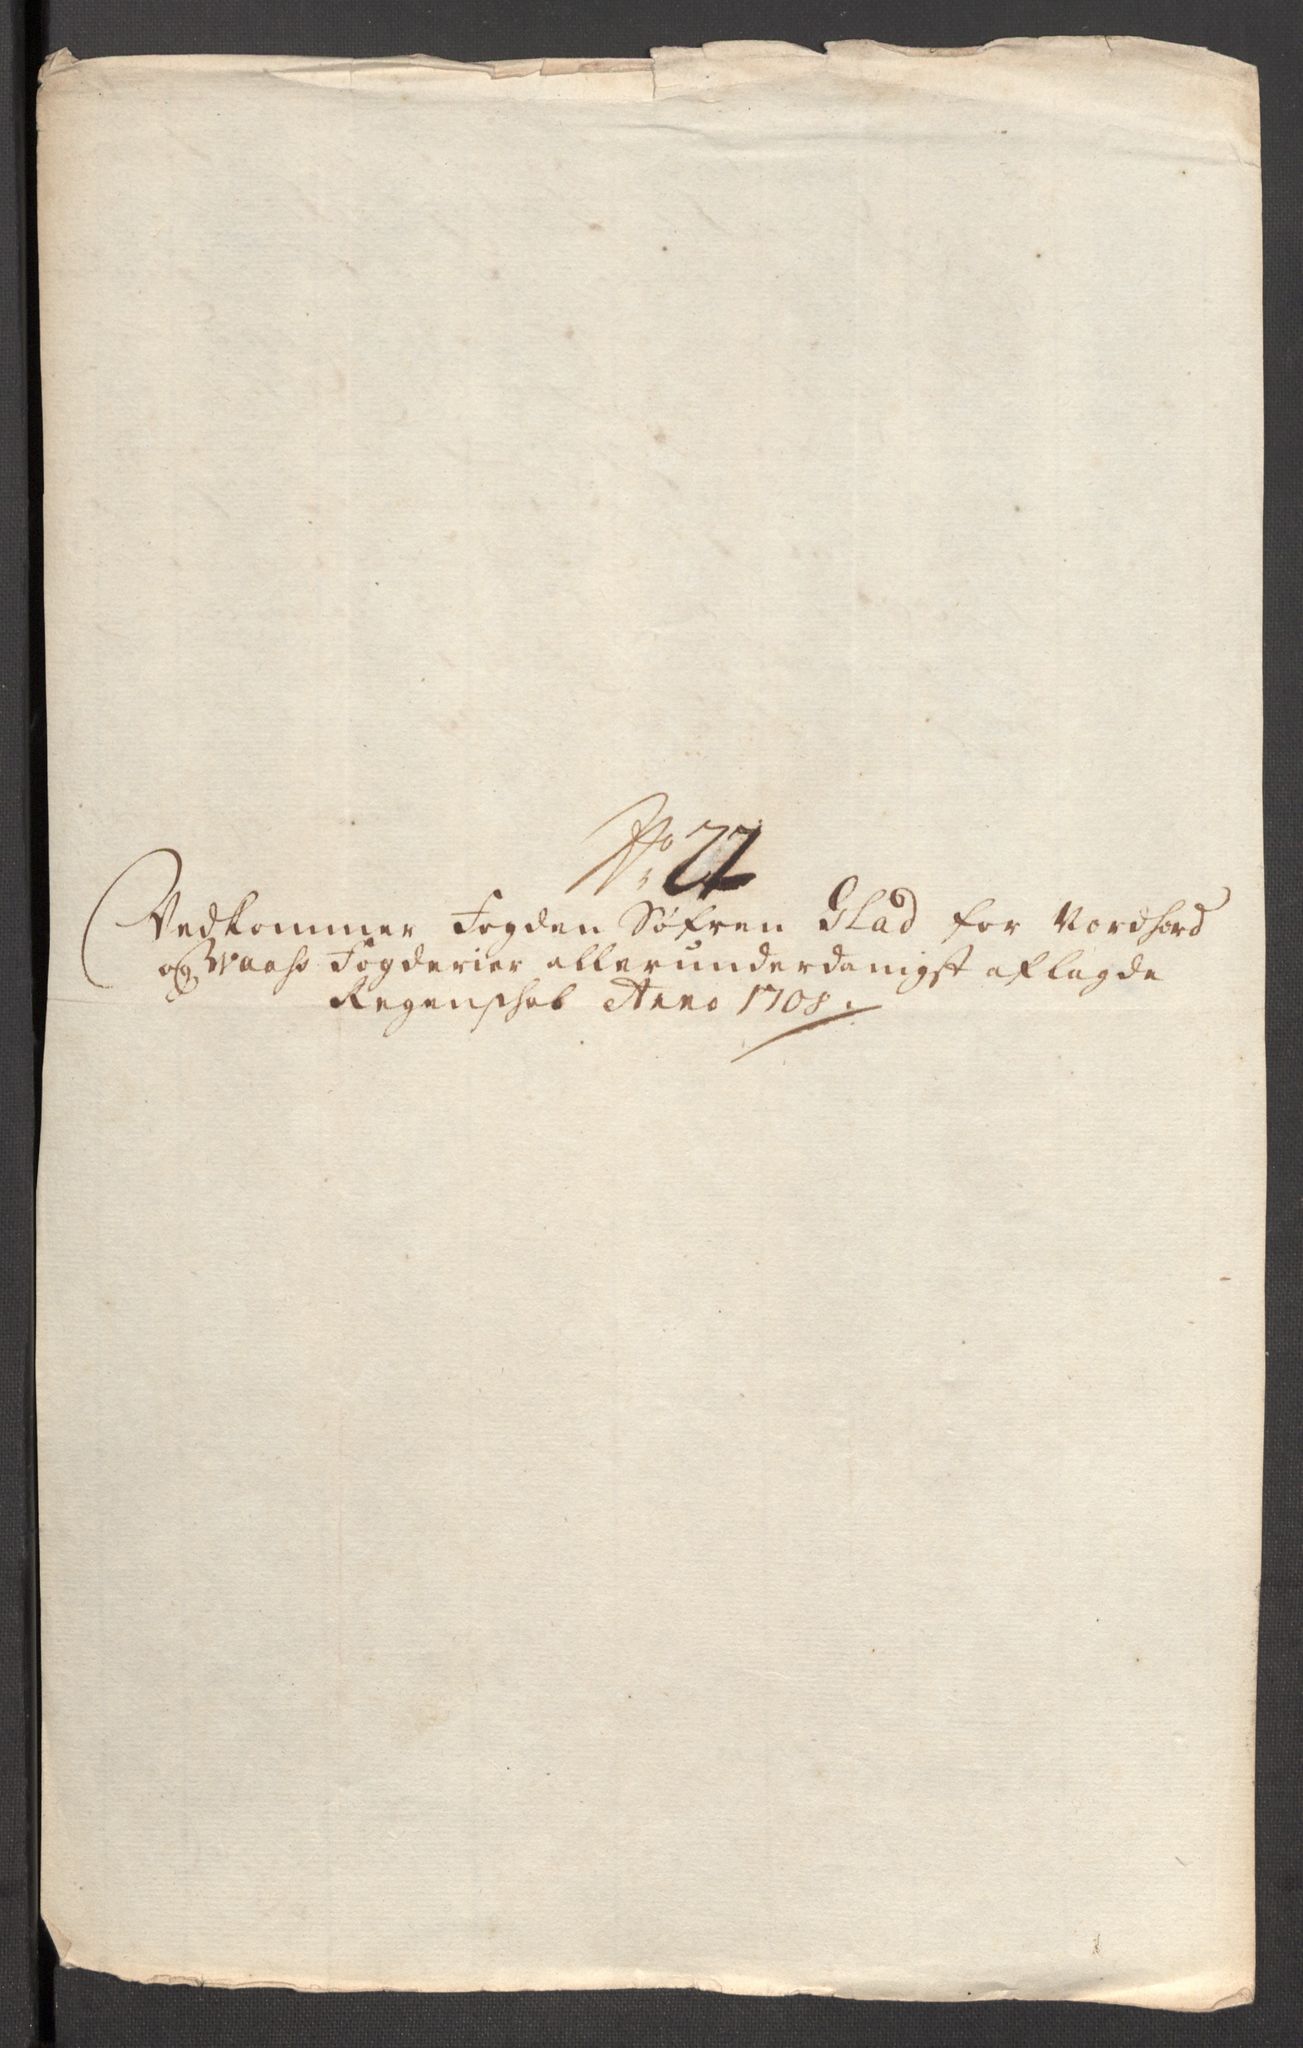 No. 22
Vedkommer Fogden Søfren Glad for Nordhord
og Waas Fogderier allerunderdanigst aflagde
Regenschab Anno 1708.